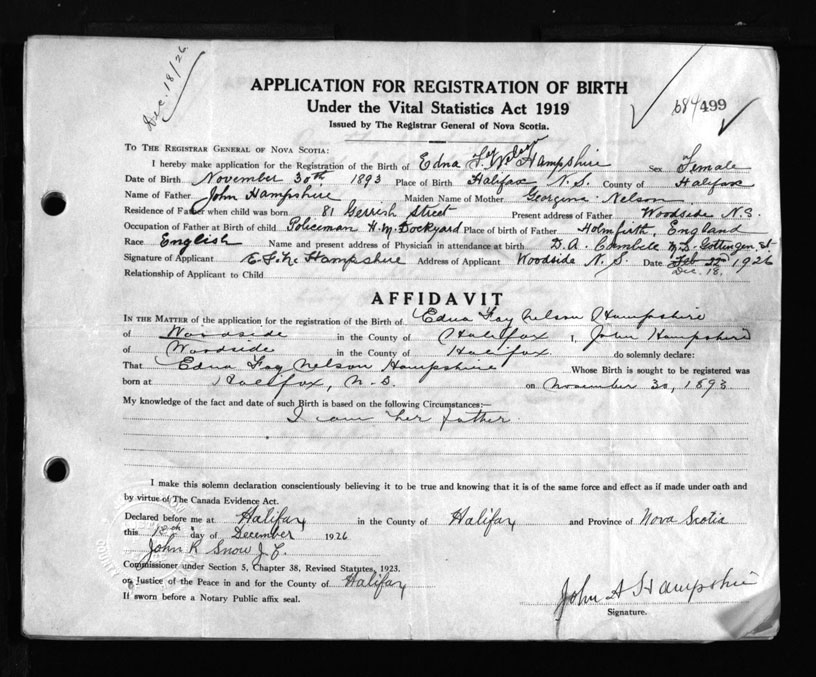 Dec. 18/26.
APPLICATION FOR REGISTRATION OF BIRTH
Under the Vital Statistics Act 1919
Issued by The Registrar General of Nova Scotia.
684499
TO THE REGISTRAR GENERAL OF NOVA SCOTIA:
I hereby make application for the Registration of the Birth of Edna Fay Nelson Hampshire Sex Female
Date of Birth November 30th 1893 Place of Birth Halifax N.S. County of Halifax
Name of Father John Hampshire Maiden Name of Mother Georgina Nelson
Residence of Father when child was born 81 Gerrish Street Present address of Father Woodside N.S.
Occupation of Father at Birth of child Policeman H.M. Dockyard Place of birth of Father Holmfirth, England
Race English Name and present address of Physician in attendance at birth D.A. M.D. Gottingen St.
Signature of Applicant Hampshire Address of Applicant Woodside N.S. Date Feb 22nd 1926
Dec. 18.
Relationship of Applicant to Child
AFFIDAVIT
IN THE MATTER of the application for the registration of the Birth of Edna Fay Nelson Hampshire
of Woodside in the County of Halifax I, John Hampshire
of Woodside in the County of Halifax. do solemnly declare:
That Edna Fay Nelson Hampshire Whose Birth is sought to be registered was
born at Halifax, N.S. on November 30, 1893.
My knowledge of the fact and date of such Birth is based on the following Circumstances:—
I am her father.
I make this solemn declaration conscientiously believing it to be true and knowing that it is of the same force and effect as if made under oath and
by virtue of The Canada Evidence Act.
Declared before me at Halifax in the County of Halifax and Province of Nova Scotia
this 18th day of December 1926
John R Snow J.P.
Commissioner under Section 5, Chapter 38, Revised Statutes, 1923.
or Justice of the Peace in and for the County of Halifax
If sworn before a Notary Public affix seal.
John A Hampshire
Signature.